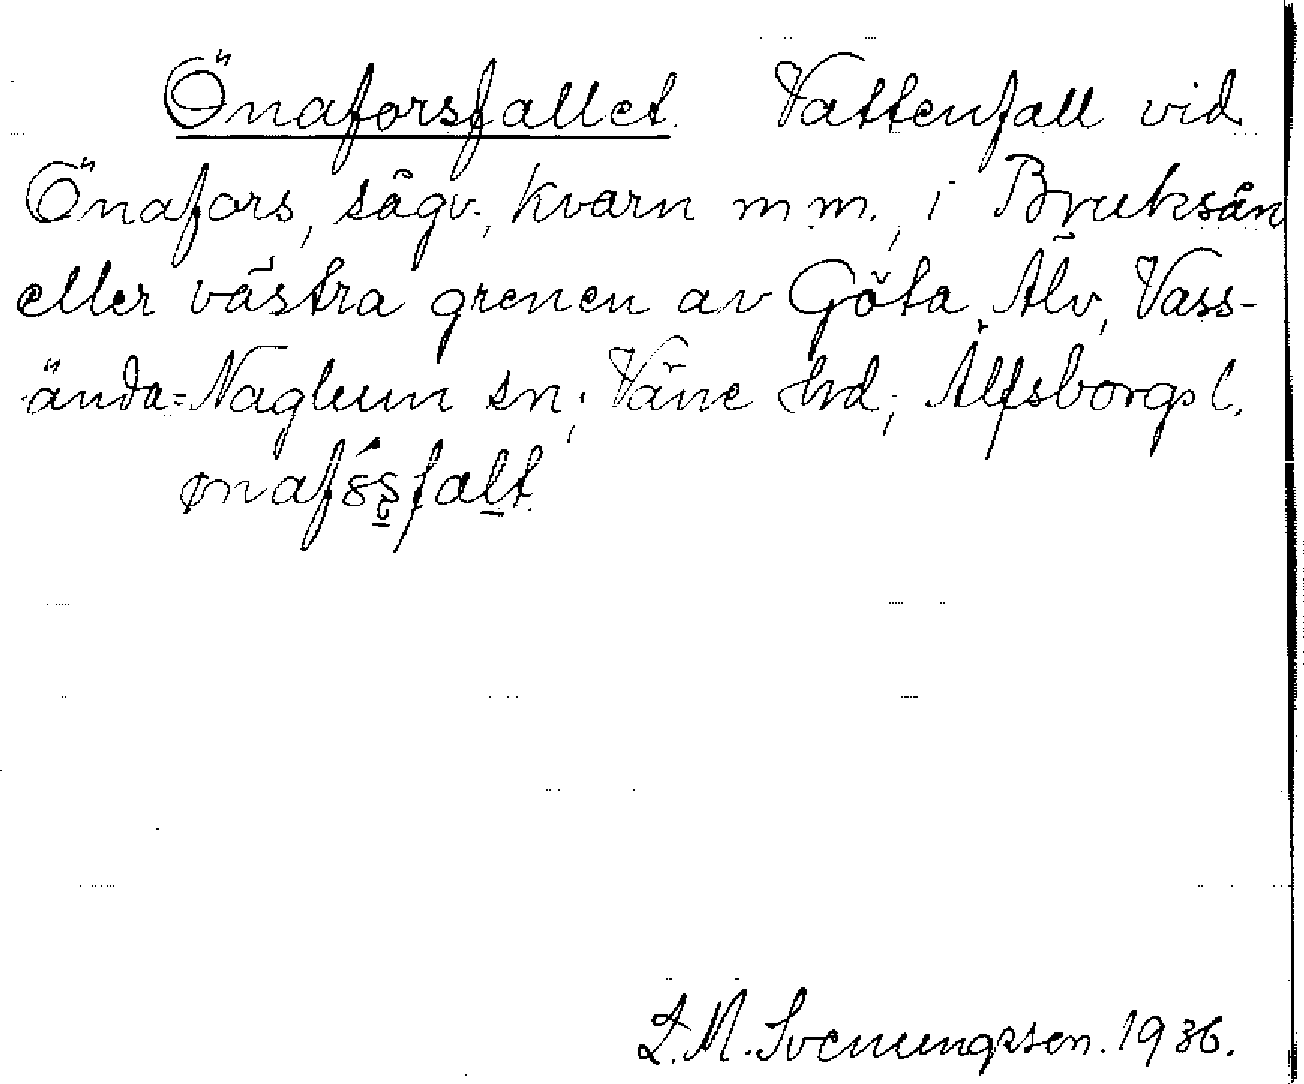 Önaforsfallet. Vattenfall vid
Önafors, sågv., kvarn m m., i Bruksån
eller västra grenen av Göta Älv, Vass-
ända-Naglum sn; Väne hd; Älfsborgs l.
L. M. Svenungsson. 1936.